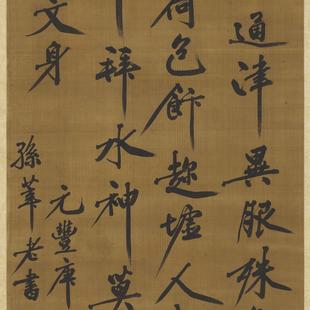 通津異服殊
荷包飰趂墟人
拜水神莫
文身
元豐庚
孫莘老書